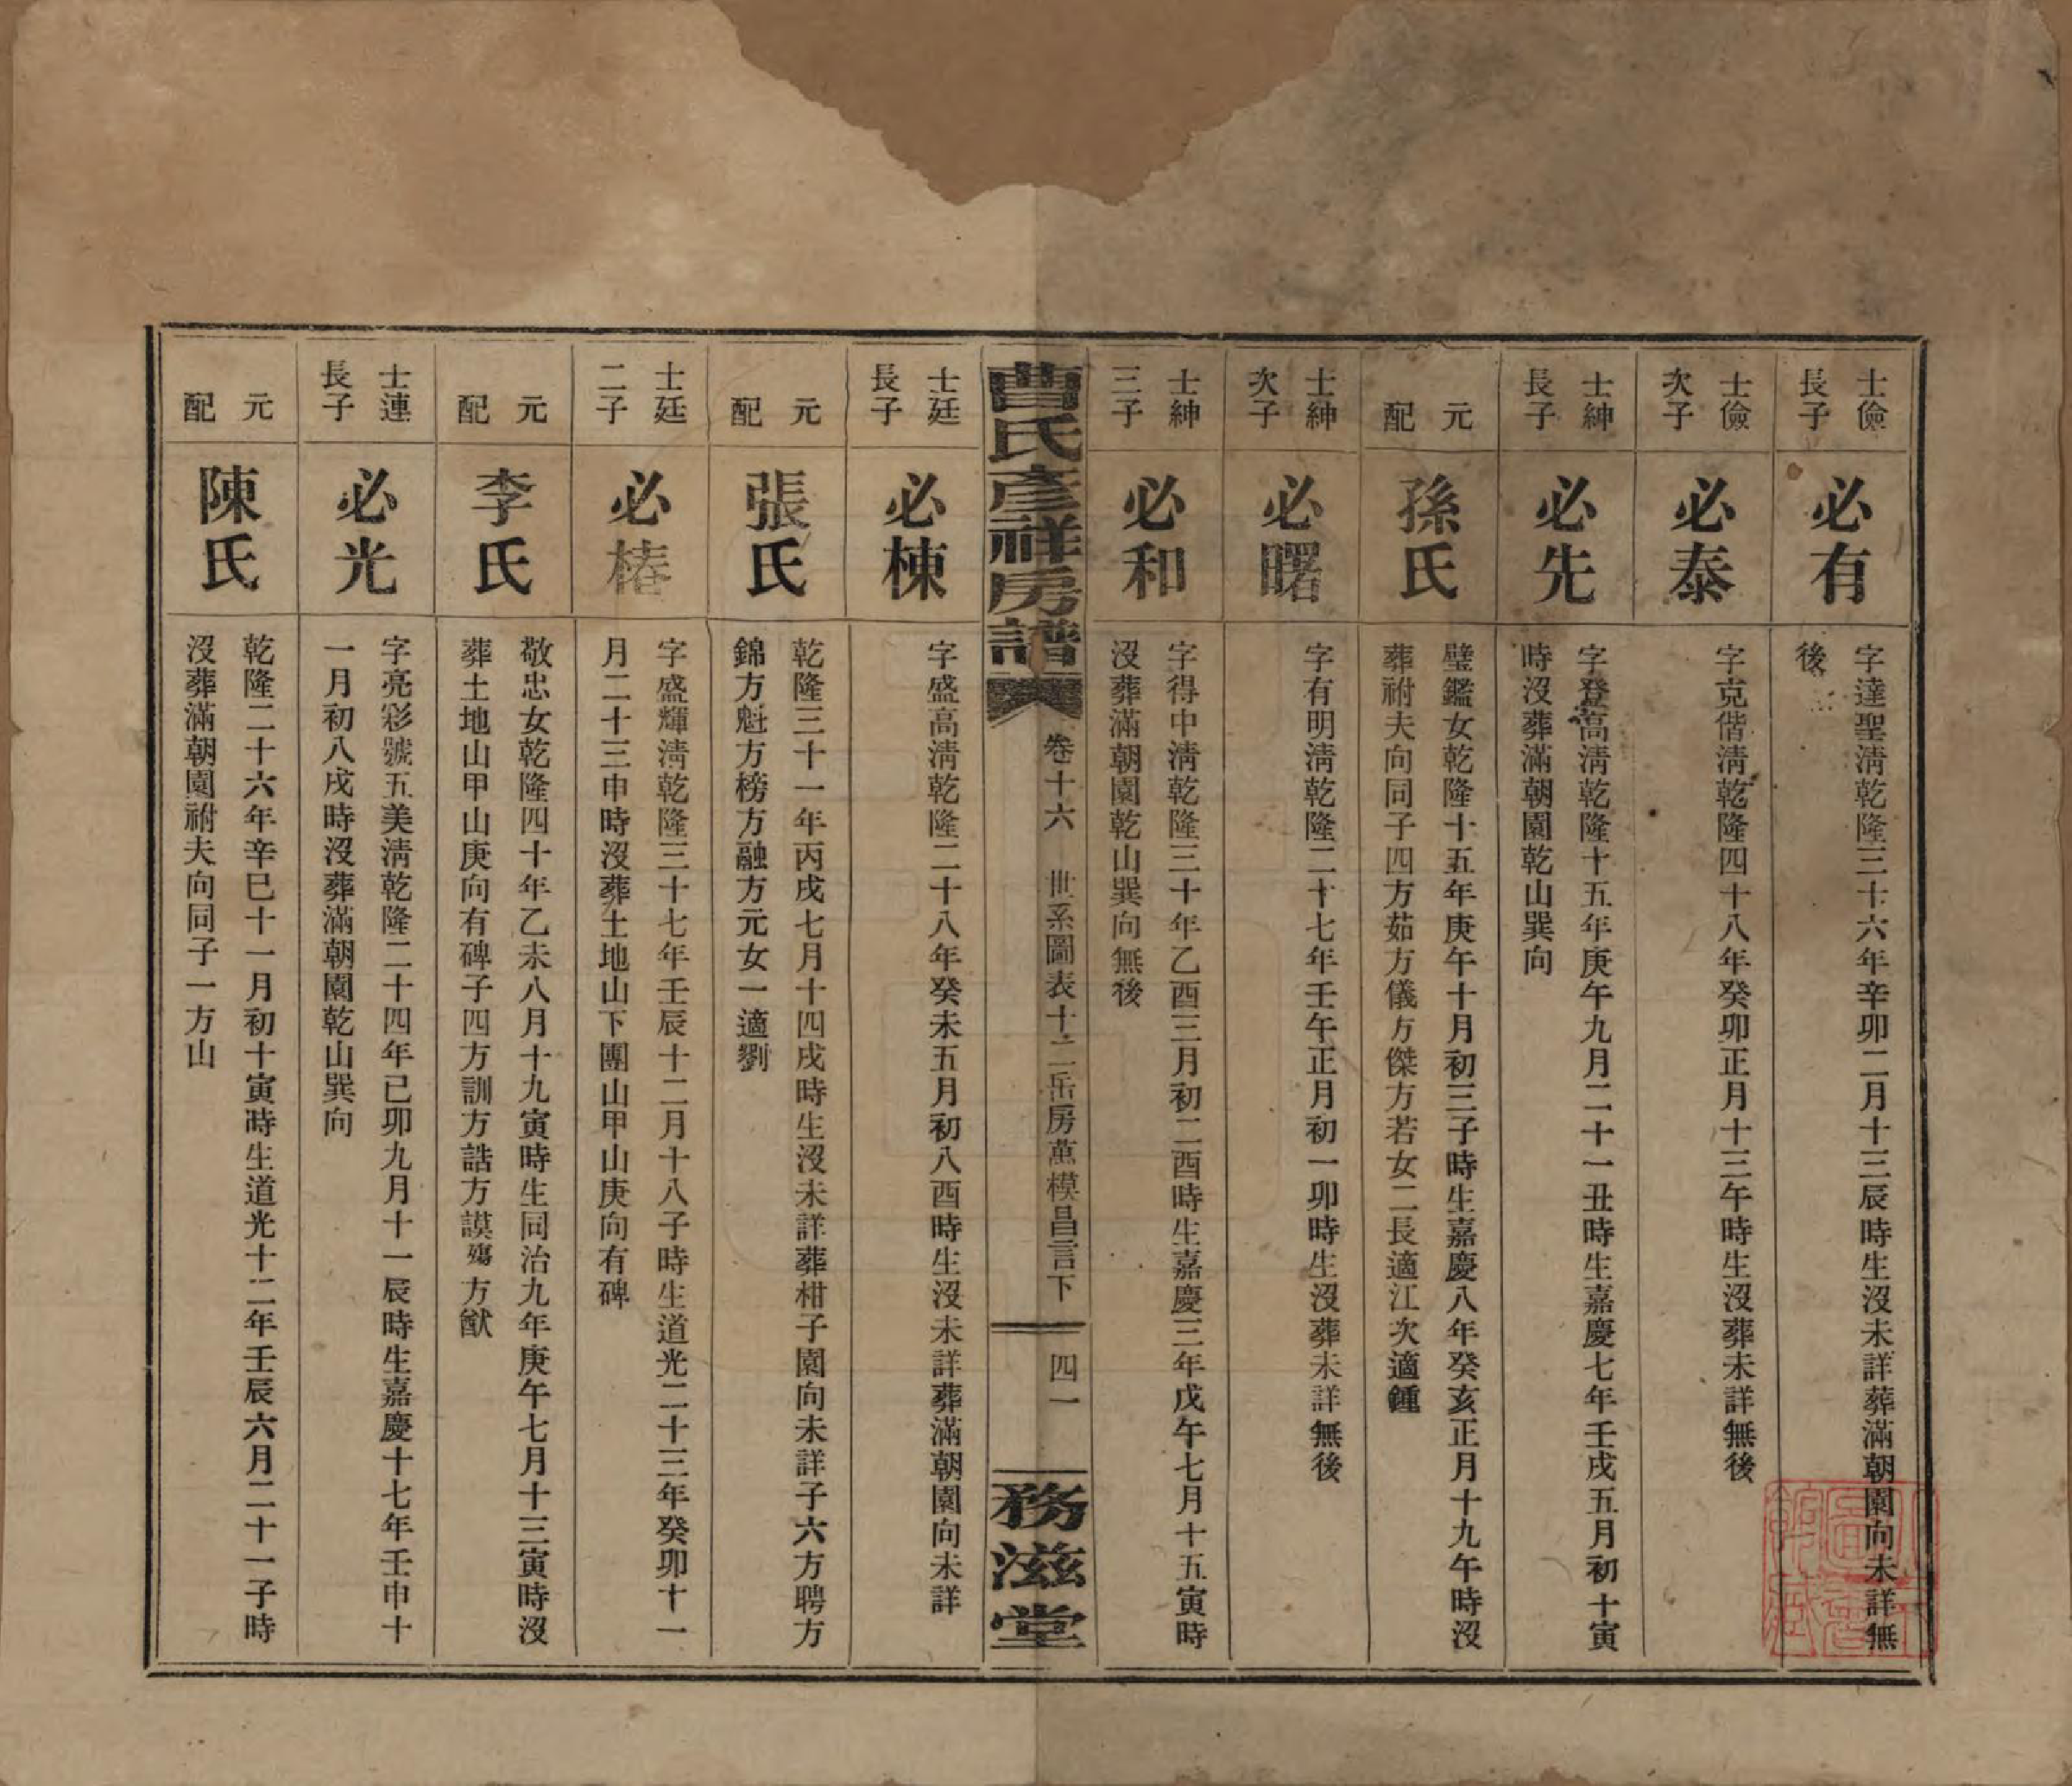 士儉
長子
必有
字達聖淸乾隆三十六年辛卯二月十三辰時生沒未詳葬滿朝園向未詳無
後
士儉
次子
必泰
字克偕淸乾隆四十八年癸卯正月十三午時生沒葬未詳無後
士紳
長子
必先
字登高淸乾隆十五年庚午九月二十一丑時生嘉慶七年壬戌五月初十寅
時沒葬滿朝園乾山巽向
元
配
孫氏
璧鑑女乾隆十五年庚午十月初三子時生嘉慶八年癸亥正月十九午時沒
葬祔夫向同子四方茹方儀方傑方若女二長適江次適鍾
士紳
次子
必曙
字有明淸乾隆二十七年壬午正月初一卯時生沒葬未詳無後
士紳
三子
必和
字得中淸乾隆三十年乙酉三月初二酉時生嘉慶三年戊午七月十五寅時
沒葬滿朝園乾山巽向無後
曹氏彥祥房譜
卷十六 世系圖表十二岳房萬模昌言下
四一
務滋堂
士廷
長子
必棟
字盛高淸乾隆二十八年癸未五月初八酉時生沒未詳葬滿朝園向未詳
元
配
張氏
乾隆三十一年丙戌七月十四戌時生沒未詳葬柑子園向未詳子六方聘方
錦方魁方榜方融方元女一適劉
士廷
二子
必椿
字盛輝淸乾隆三十七年壬辰十二月十八子時生道光二十三年癸卯十一
月二十三申時沒葬土地山下團山甲山庚向有碑
元
配
李氏
敬忠女乾隆四十年乙未八月十九寅時生同治九年庚午七月十三寅時沒
葬土地山甲山庚向有碑子四方訓方誥方謨殤方猷
士連
長子
必光
字亮彩號五美淸乾隆二十四年己卯九月十一辰時生嘉慶十七年壬申十
一月初八戌時沒葬滿朝園乾山巽向
元
配
陳氏
乾隆二十六年辛巳十一月初十寅時生道光十二年壬辰六月二十一子時
沒葬滿朝園祔夫向同子一方山